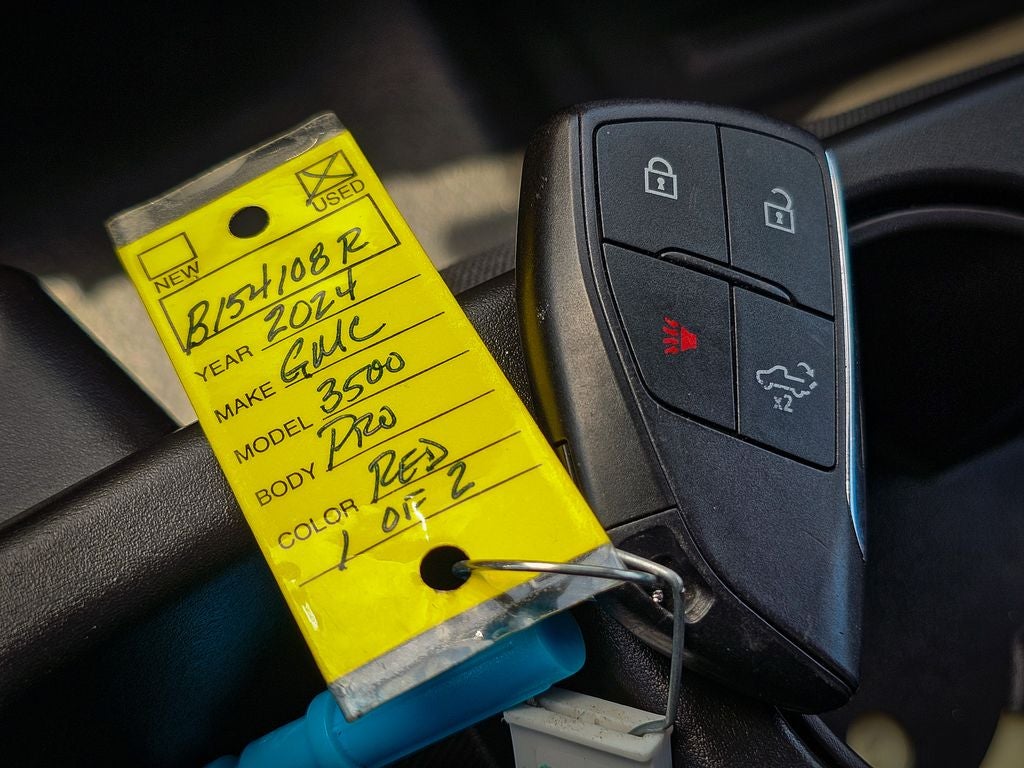 USED
NEW
B154108R
YEAR 2024
MAKE GMC
MODEL 3500
BODY PRO
COLOR RED
1 OF 2
x2